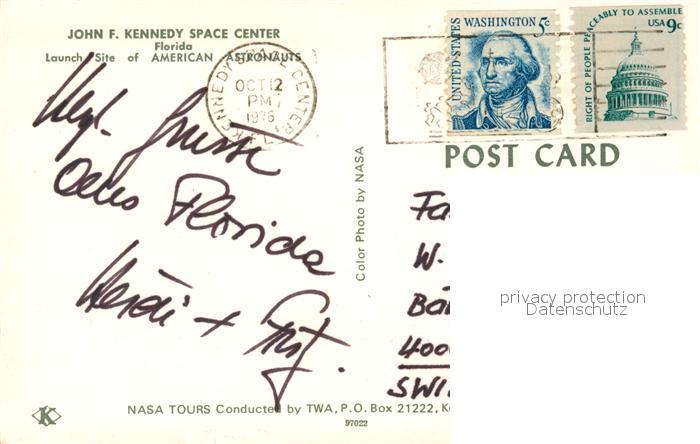 JOHN F. KENNEDY SPACE CENTER
Florida
Launch Site of AMERICAN ASTRONAUTS
KENNEDY SPACE CENTER, FL
OCT 12
PM
1976
UNITED STATES
WASHINGTON 5c
RIGHT OF PEOPLE PEACEABLY TO ASSEMBLE
USA 9c
POST CARD
Color Photo by NASA
Grüsse
aus Florida
Heidi +
Fa
W.
Bä
400
SWI
privacy protection
Datenschutz
K
NASA TOURS Conducted by TWA, P.O. Box 21222, K
97022